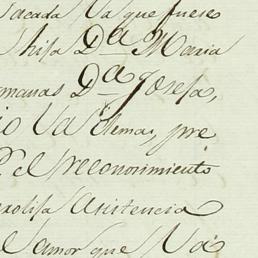 sacada la que fuese
hija Dª Maria
manas Dª Josefa,
io la demas, pre
el reconocimiento
rolija asistencia
el amor que la